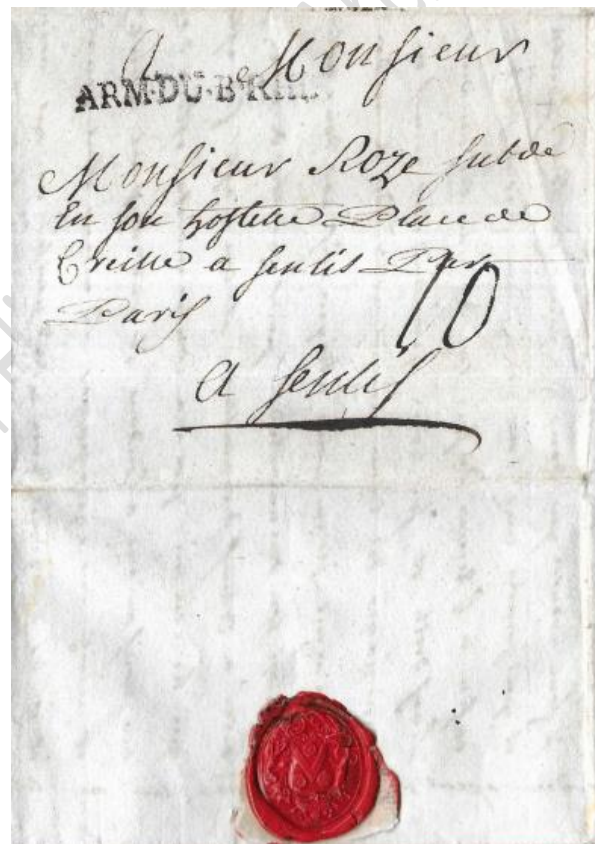 A Monsieur
ARM·DU·B·RHI
Monsieur Roze subde
En son hostelle Place de
Creille a senlis Par
Paris
10
a senlis